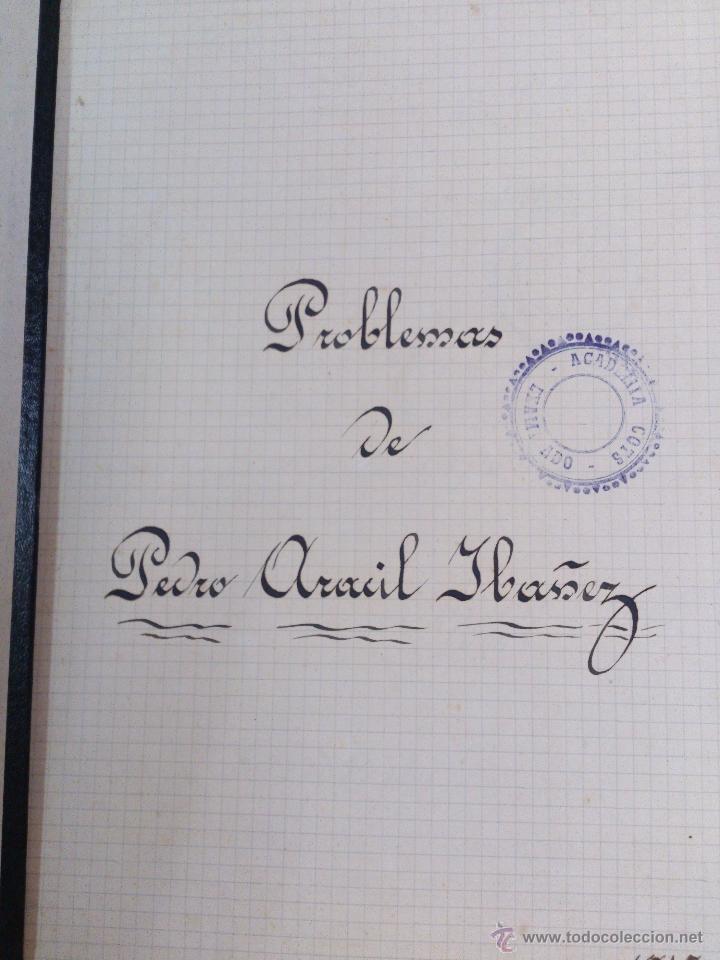 Problemas
de
Pedro Aracil Ibañez
ACADEMIA COTS
© www.todocoleccion.net